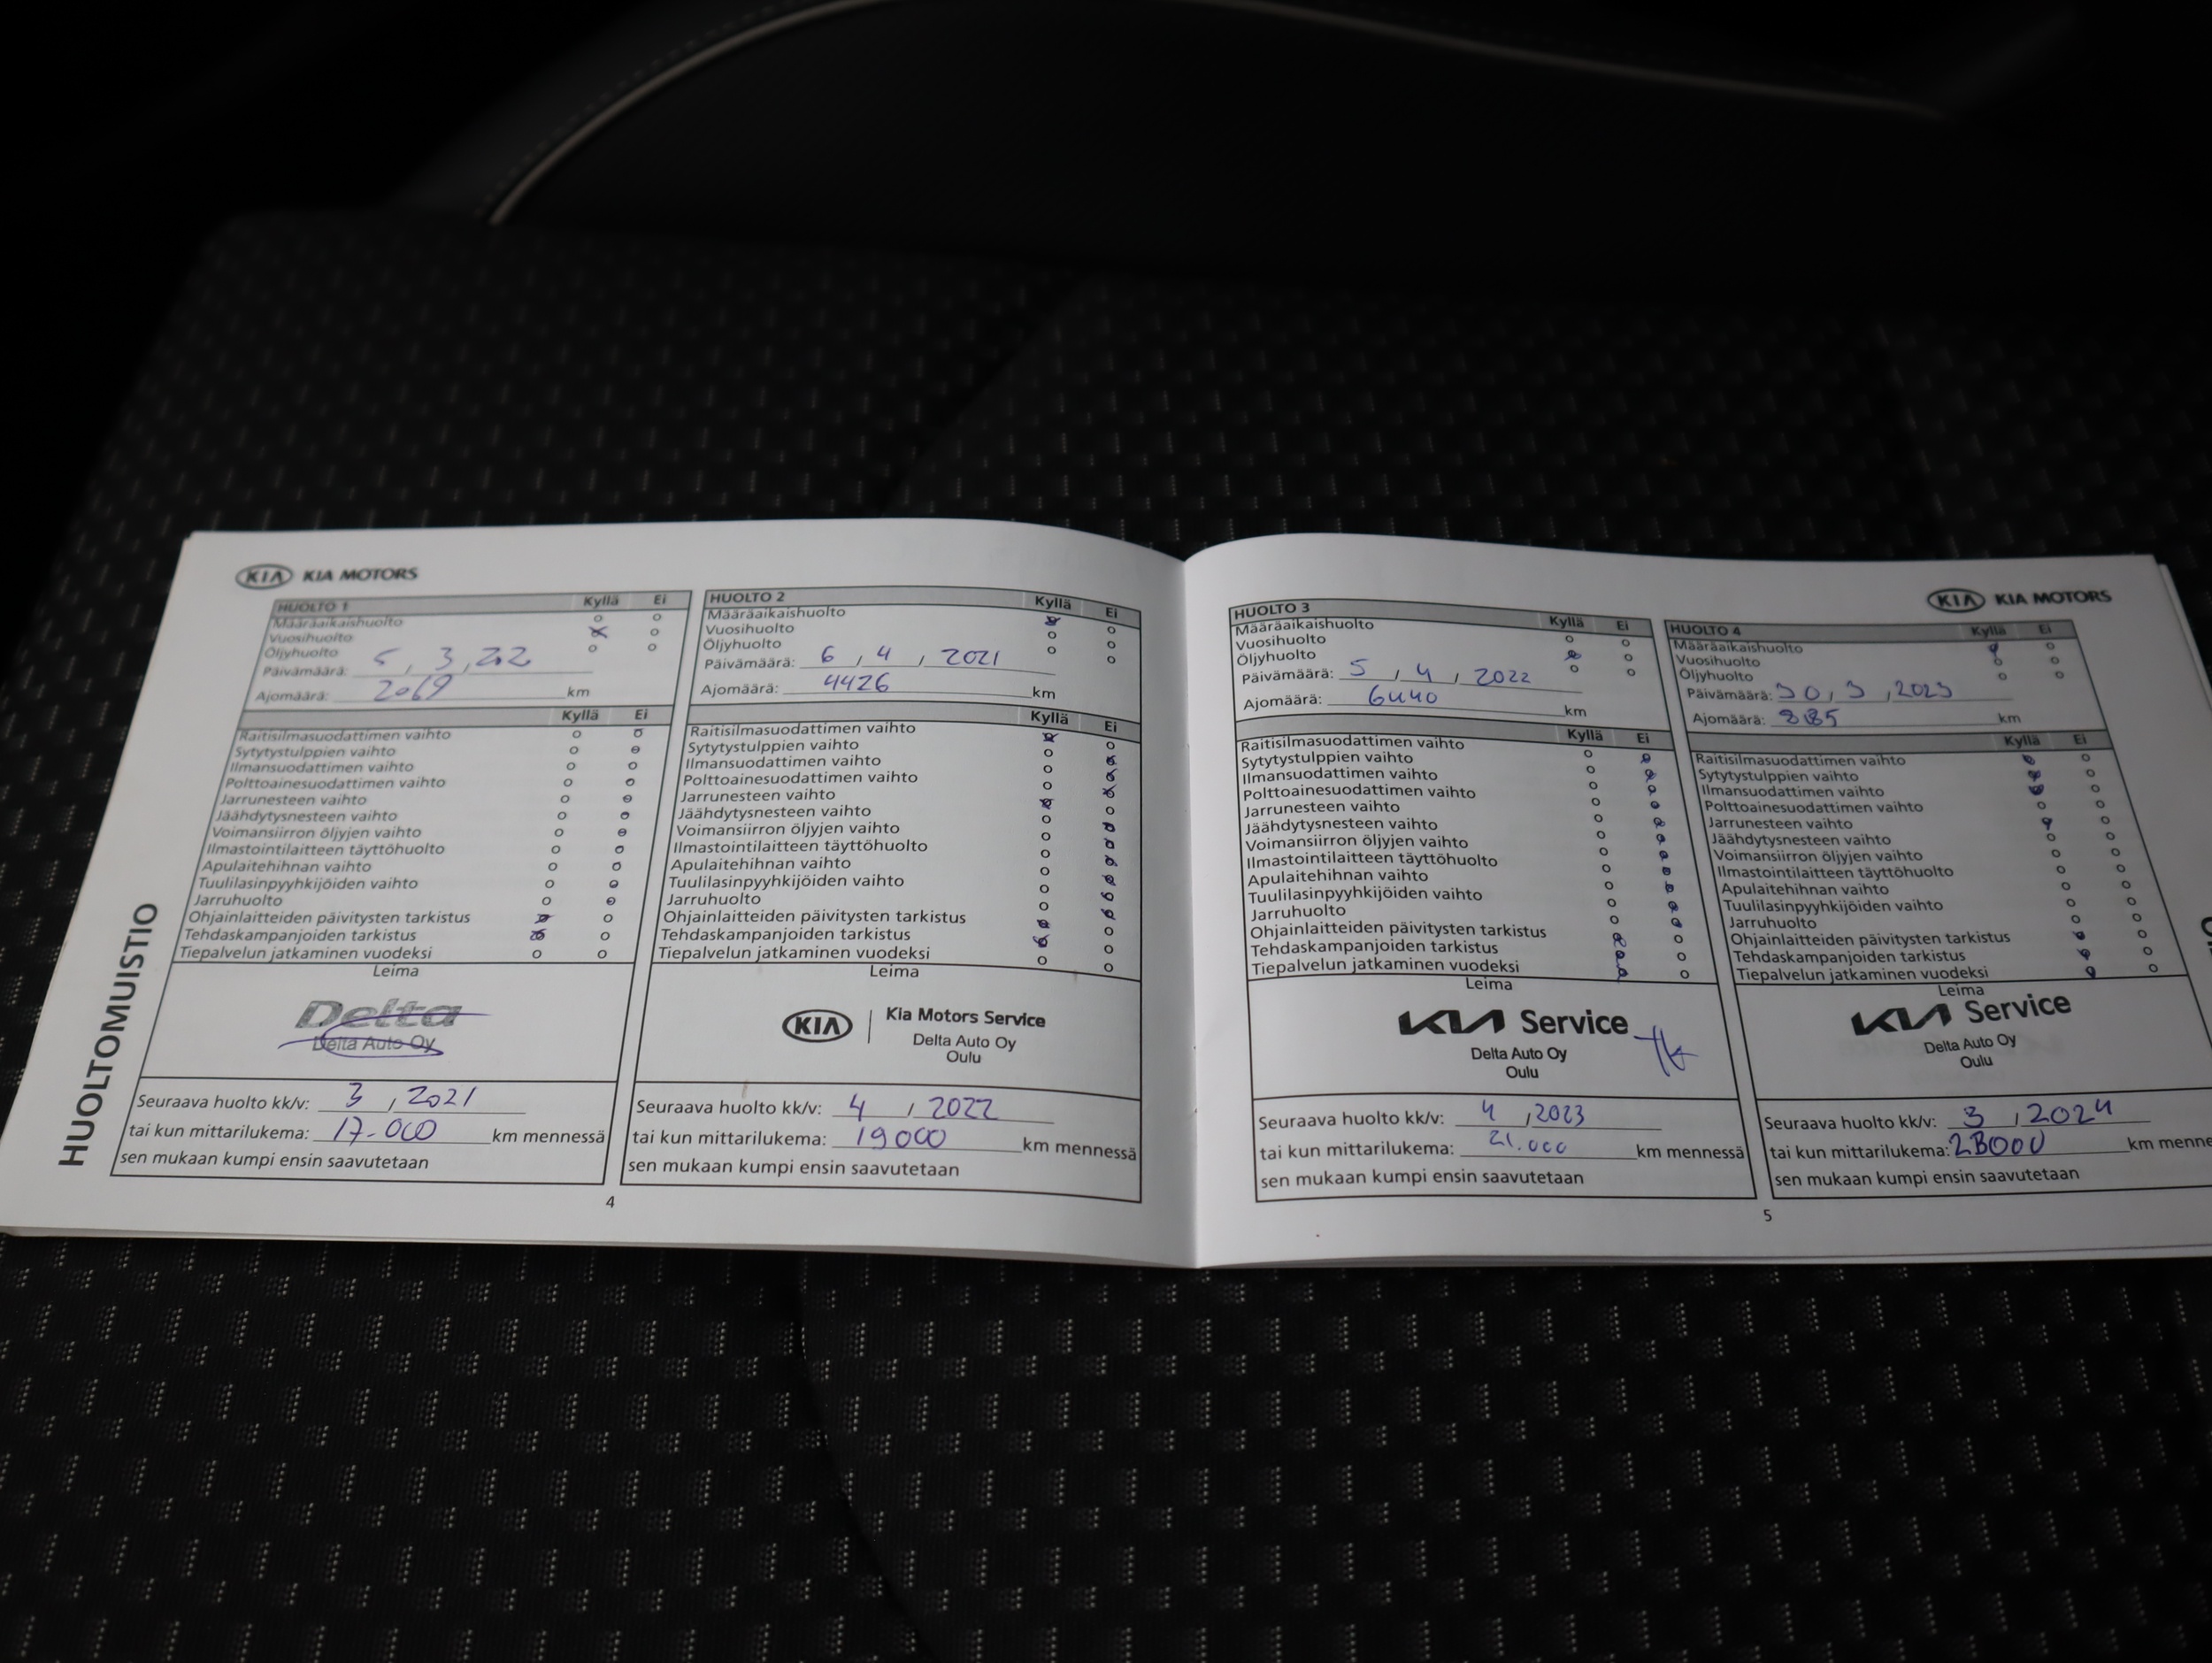 HUOLTOMUISTIO
KIA KIA MOTORS
HUOLTO 1 Kyllä Ei
Määräaikaishuolto
Vuosihuolto
Öljyhuolto
Päivämäärä: 5, 3,
Ajomäärä: 2069 km
Kyllä Ei
Raitisilmasuodattimen vaihto
Sytytystulppien vaihto
Ilmansuodattimen vaihto
Polttoainesuodattimen vaihto
Jarrunesteen vaihto
Jäähdytysnesteen vaihto
Voimansiirron öljyjen vaihto
Ilmastointilaitteen täyttöhuolto
Apulaitehihnan vaihto
Tuulilasinpyyhkijöiden vaihto
Jarruhuolto
Ohjainlaitteiden päivitysten tarkistus
Tehdaskampanjoiden tarkistus
Tiepalvelun jatkaminen vuodeksi
Leima
Delta
Delta Auto Oy
Seuraava huolto kk/v: 3 , 2021
tai kun mittarilukema: 17.000 km mennessä
sen mukaan kumpi ensin saavutetaan
HUOLTO 2 Kyllä Ei
Määräaikaishuolto
Vuosihuolto
Öljyhuolto
Päivämäärä: 6 , 4 , 2021
Ajomäärä: 4426 km
Kyllä Ei
Raitisilmasuodattimen vaihto
Sytytystulppien vaihto
Ilmansuodattimen vaihto
Polttoainesuodattimen vaihto
Jarrunesteen vaihto
Jäähdytysnesteen vaihto
Voimansiirron öljyjen vaihto
Ilmastointilaitteen täyttöhuolto
Apulaitehihnan vaihto
Tuulilasinpyyhkijöiden vaihto
Jarruhuolto
Ohjainlaitteiden päivitysten tarkistus
Tehdaskampanjoiden tarkistus
Tiepalvelun jatkaminen vuodeksi
Leima
KIA Kia Motors Service
Delta Auto Oy
Oulu
Seuraava huolto kk/v: 4 , 2022
tai kun mittarilukema: 19000 km mennessä
sen mukaan kumpi ensin saavutetaan
4
KIA KIA MOTORS
HUOLTO 3 Kyllä Ei
Määräaikaishuolto
Vuosihuolto
Öljyhuolto
Päivämäärä: 5 , 4 , 2022
Ajomäärä: 6440 km
Kyllä Ei
Raitisilmasuodattimen vaihto
Sytytystulppien vaihto
Ilmansuodattimen vaihto
Polttoainesuodattimen vaihto
Jarrunesteen vaihto
Jäähdytysnesteen vaihto
Voimansiirron öljyjen vaihto
Ilmastointilaitteen täyttöhuolto
Apulaitehihnan vaihto
Tuulilasinpyyhkijöiden vaihto
Jarruhuolto
Ohjainlaitteiden päivitysten tarkistus
Tehdaskampanjoiden tarkistus
Tiepalvelun jatkaminen vuodeksi
Leima
KIA Service
Delta Auto Oy
Oulu
Seuraava huolto kk/v: 4 , 2023
tai kun mittarilukema: 21.000 km mennessä
sen mukaan kumpi ensin saavutetaan
HUOLTO 4 Kyllä Ei
Määräaikaishuolto
Vuosihuolto
Öljyhuolto
Päivämäärä: 30 , 3 , 2023
Ajomäärä: km
Kyllä Ei
Raitisilmasuodattimen vaihto
Sytytystulppien vaihto
Ilmansuodattimen vaihto
Polttoainesuodattimen vaihto
Jarrunesteen vaihto
Jäähdytysnesteen vaihto
Voimansiirron öljyjen vaihto
Ilmastointilaitteen täyttöhuolto
Apulaitehihnan vaihto
Tuulilasinpyyhkijöiden vaihto
Jarruhuolto
Ohjainlaitteiden päivitysten tarkistus
Tehdaskampanjoiden tarkistus
Tiepalvelun jatkaminen vuodeksi
Leima
KIA Service
Delta Auto Oy
Oulu
Seuraava huolto kk/v: 3 , 2024
tai kun mittarilukema: 23000 km menne
sen mukaan kumpi ensin saavutetaan
5